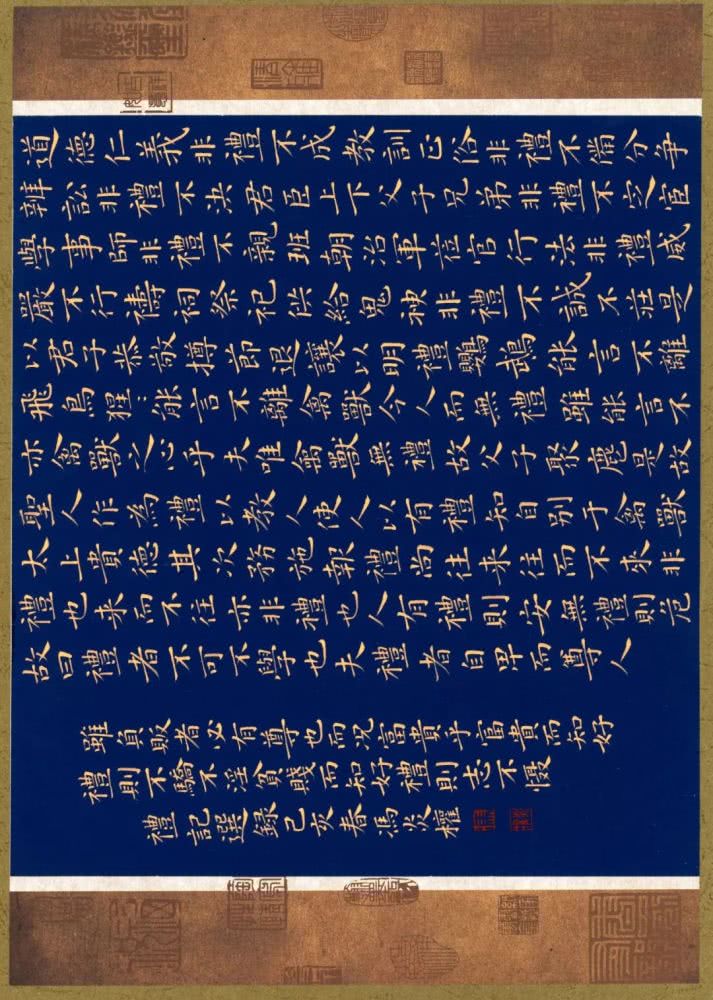 道德仁義非禮不成教訓正俗非禮不備分爭
辨訟非禮不決君臣上下父子兄弟非禮不定宦
學事師非禮不親班朝治軍莅官行法非禮威
嚴不行禱祠祭祀供給鬼神非禮不誠不莊是
以君子恭敬撙節退讓以明禮鸚鵡能言不離
飛鳥猩:能言不離禽獸今人而無禮雖能言不
亦禽獸之心乎夫唯禽獸無禮故父子聚麀是故
聖人作為禮以教人使人以有禮知自別于禽獸
太上貴德其次務施報禮尚往来往而不來非
禮也来而不往亦非禮也人有禮則安無禮則危
故曰禮者不可不學也夫禮者自卑而尊人
雖負販者必有尊也而况富貴乎富貴而知好
禮則不驕不淫貧賤而知好禮則志不懾
禮記選錄己亥春馮炎權